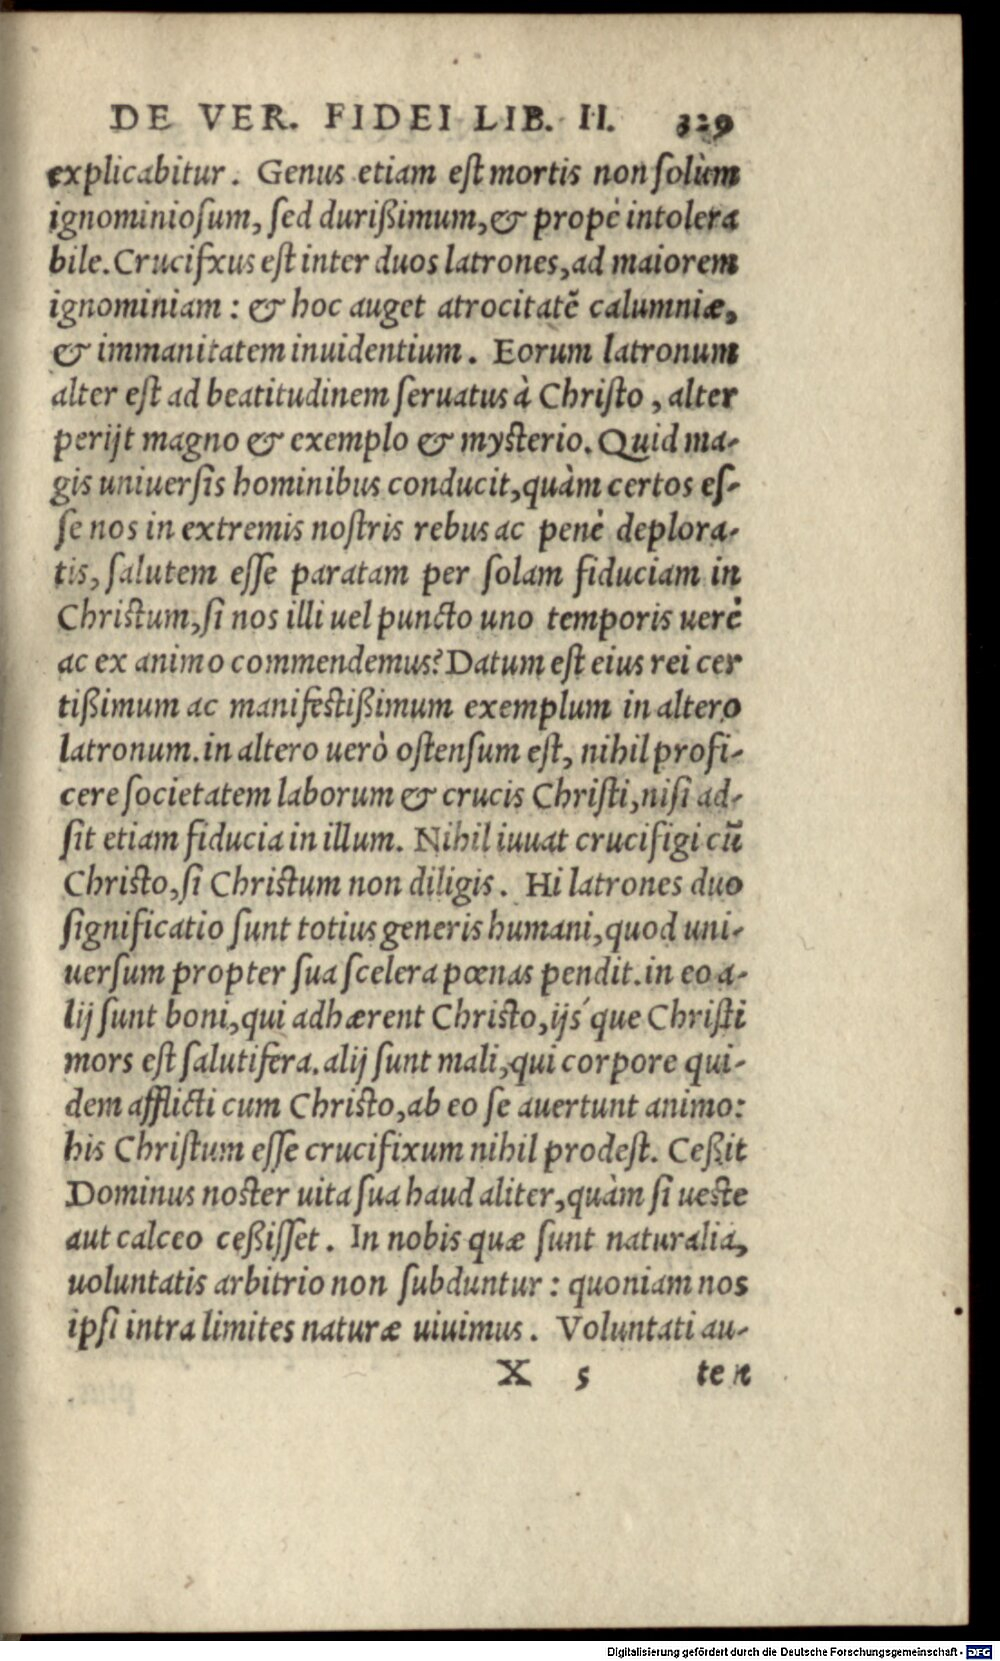 DE VER. FIDEI LIB. II. 329
explicabitur. Genus etiam est mortis non solùm
ignominiosum, sed durißimum, & propè intolera
bile. Crucifxus est inter duos latrones, ad maiorem
ignominiam: & hoc auget atrocitatẽ calumniæ,
& immanitatem inuidentium. Eorum latronum
alter est ad beatitudinem seruatus à Christo, alter
perijt magno & exemplo & mysterio. Quid ma-
gis uniuersis hominibus conducit, quàm certos es-
se nos in extremis nostris rebus ac penè deplora-
tis, salutem esse paratam per solam fiduciam in
Christum, si nos illi uel puncto uno temporis uerè
ac ex animo commendemus? Datum est eius rei cer
tißimum ac manifestißimum exemplum in altero
latronum. in altero uerò ostensum est, nihil profi-
cere societatem laborum & crucis Christi, nisi ad-
sit etiam fiducia in illum. Nihil iuuat crucifigi cũ
Christo, si Christum non diligis. Hi latrones duo
significatio sunt totius generis humani, quod uni-
uersum propter sua scelera pœnas pendit. in eo a-
lij sunt boni, qui adhærent Christo, ijs´que Christi
mors est salutifera. alij sunt mali, qui corpore qui-
dem afflicti cum Christo, ab eo se auertunt animo:
his Christum esse crucifixum nihil prodest. Ceßit
Dominus noster uita sua haud aliter, quàm si ueste
aut calceo ceßisset. In nobis quæ sunt naturalia,
uoluntatis arbitrio non subduntur: quoniam nos
ipsi intra limites naturæ uiuimus. Voluntati au-
X 5 tem
Digitalisierung gefördert durch die Deutsche Forschungsgemeinschaft - DFG